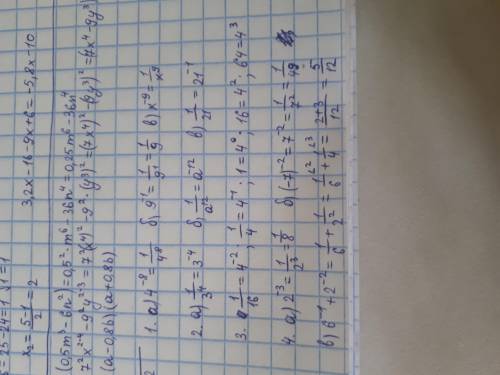 = 25-24=1 √1=1
x₂ = (5-1)/2 = 2
3,2x-16-9x+6=-5,8x-10
(0,5m³-6n²)=0,5²·m⁶-36n⁴=0,25m⁶-36n⁴
7²x²·⁴-9²y²·³=7²(x⁴)²-9²·(y³)²=(7x⁴)²-(9y³)²=(7x⁴-9y³)
(a-0,8b)(a+0,8b)
2
1. а) 4⁻⁸=1/4⁸ б) 9⁻¹=1/9¹=1/9 в) x⁻⁹=1/x⁹
2. а) 1/3⁴=3⁻⁴ б) 1/a¹²=a⁻¹² в) 1/21=21⁻¹
3. 1/16=4⁻²; 1/4=4⁻¹; 1=4⁰; 16=4²; 64=4³
4. а) 2⁻³=1/2³=1/8 б) (-7)⁻²=7⁻²=1/7²=1/49
в) 6⁻¹+2⁻²=1/6+1/2²=1/6+1/4=(2+3)/12=5/12